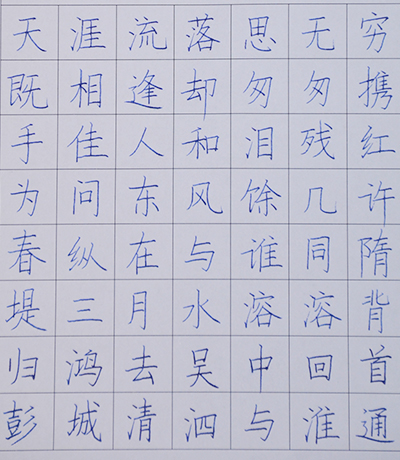 天涯流落思无穷
既相逢却匆匆携
手佳人和泪残红
为问东风馀几许
春纵在与谁同隋
堤三月水溶溶背
归鸿去吴中回首
彭城清泗与淮通